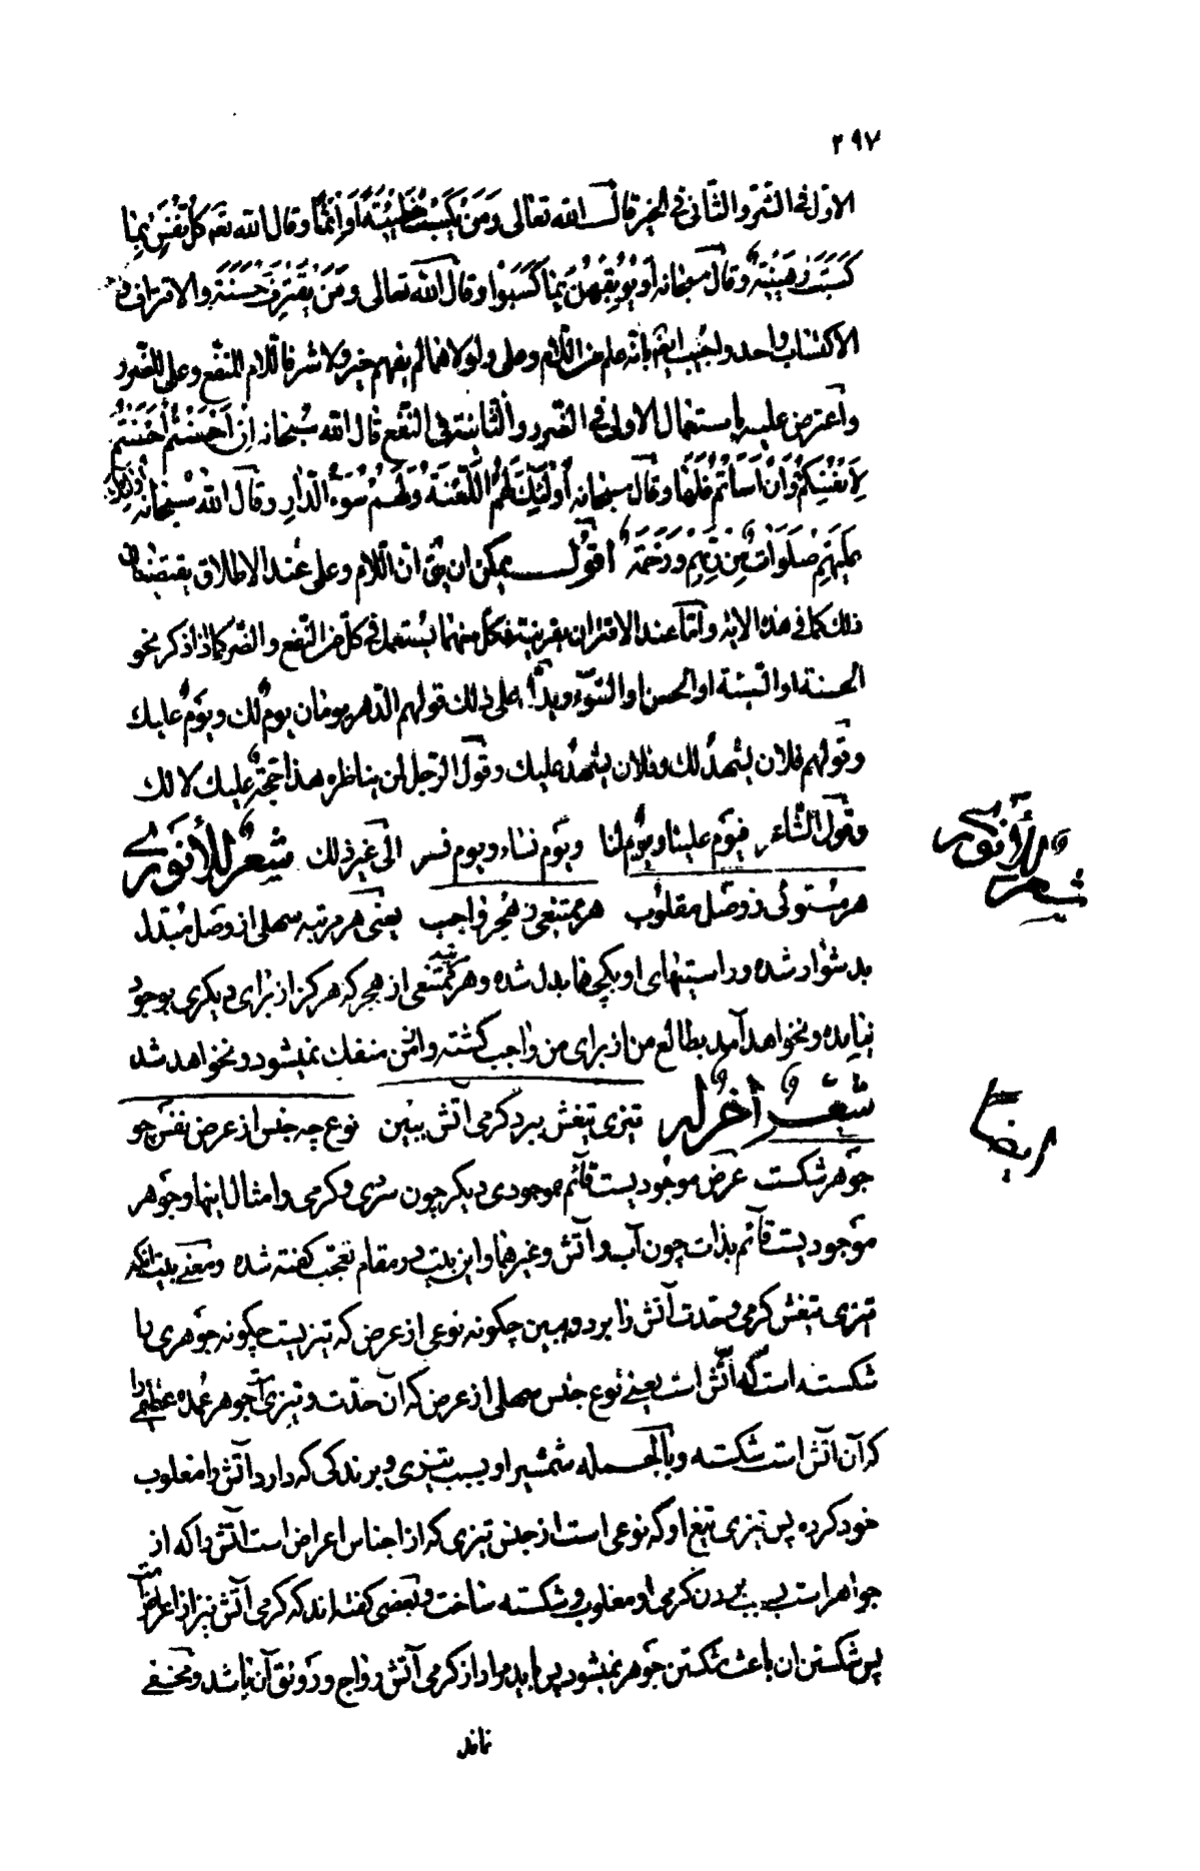 ٢٩٧
الاوّل فى الشرّ والثّانى فى الخير قال الله تعالى وَمَنْ يَكْسِبْ خَطِيئَةً أَوْ إِثْمًا وقال الله تعه كُلُّ نَفْسٍ بِمَا
كَسَبَتْ رَهِينَةٌ وقال سبحانه أَوْ يُوبِقْهُنَّ بِمَا كَسَبُوا وقال الله تعالى وَمَنْ يَقْتَرِفْ حَسَنَةً والاقتراف و
الاكتساب واحد واجيب ايضًا بانّه علم من اللّام وعلى ولولاهما لم يفهم خير ولا شر فاللّام للنّفع وعلى للضّرر
واعترض عليه باستعمال الاولى فى الضّرر والثّانية فى النّفع قال الله سُبْحانه إِنْ أَحْسَنْتُمْ أَحْسَنْتُمْ
لِأَنْفُسِكُمْ وَإِنْ أَسَأْتُمْ فَلَهَا وقال سبحانه أُولَئِكَ لَهُمُ اللَّعْنَةُ وَلَهُمْ سُوءُ الدَّارِ وقال الله سُبْحانه أُولَئِكَ
عَلَيْهِمْ صَلَوَاتٌ مِنْ رَبِّهِمْ وَرَحْمَةٌ اقول يمكن ان يق انّ اللّام وعلى عند الاطلاق يقتضيان
ذلك كما فى هذه الاية وامّا عند الاقتران بقرينة فكلّ منهما يستعمل فى كلّ من النّفع والضّر كما اذا ذكر نحو
الحسنة او السّيئة او الحسن او السّوء ويدلّ على ذلك قولهم الدّهر يومان يومٌ لك ويومٌ عليك
وقولهم فلان يشهدُ لك وفلان يشهدُ عليك وقول الرّجل لمن يناظره هذا حجّةٌ عليك لا لك
وقول الشّاعر فيوم علينا ويوم لنا ويوم نساء ويوم نسر الى غير ذلك شعرٌ للأنورى
هر مستوئى ز وصل مقلوب هر ممتنعى ز هجر واجب يعنى هر مرتبه سهلى از وصل مبدّل
بدشوار شده وراستيهاى او بكجيها بدل شده وهر مرتبه ممتنعى از هجر كه هركز از براى ديكرى بوجود
نيامده ونخواهد آمد بطالع من از براى من واجب كشته واز من منفك نميشود ونخواهد شد
شعرٌ اخرُ له تيزى تيغش ببرد كرمى آتش ببين نوع چه جنس از عرض نفس چو
جوهر شكست عرض موجوديست قائم بموجودى ديكر چون سردى وكرمى وامثال اينها وجوهر
موجوديست قائم بذات چون آب و آتش وغيرهما واين بيت در مقام تعجّب كفته شده ومعنى بيت انكه
تيزى تيغش كرمى وحدت آتش را برد وببين چكونه نوعى از عرض كه تيزيست چكونه جوهرى را
شكسته است كه آتش است يعنى نوع جنس سهلى از عرض كه آن حدّت وتيزى است جوهر عمده عظيمى را
كه آن آتش است شكسته وبالجمله شمشير او بسبب تيزى وبرندكى كه دارد آتش را مغلوب
خود كرده پس تيزى تيغ او كه نوعى است از جنس تيزى كه از اجناس اعراض است آتش را كه از
جواهر است بسبب بردن كرمى او مغلوب وشكسته ساخت وبعضى كفته اند كه كرمى آتش نيز از اعراض است
پس شكستن ان باعث شكستن جوهر نميشود پس بايد مراد از كرمى آتش رواج ورونق آن باشد ومخفى
نماند
شعر للأنورى
ايضًا